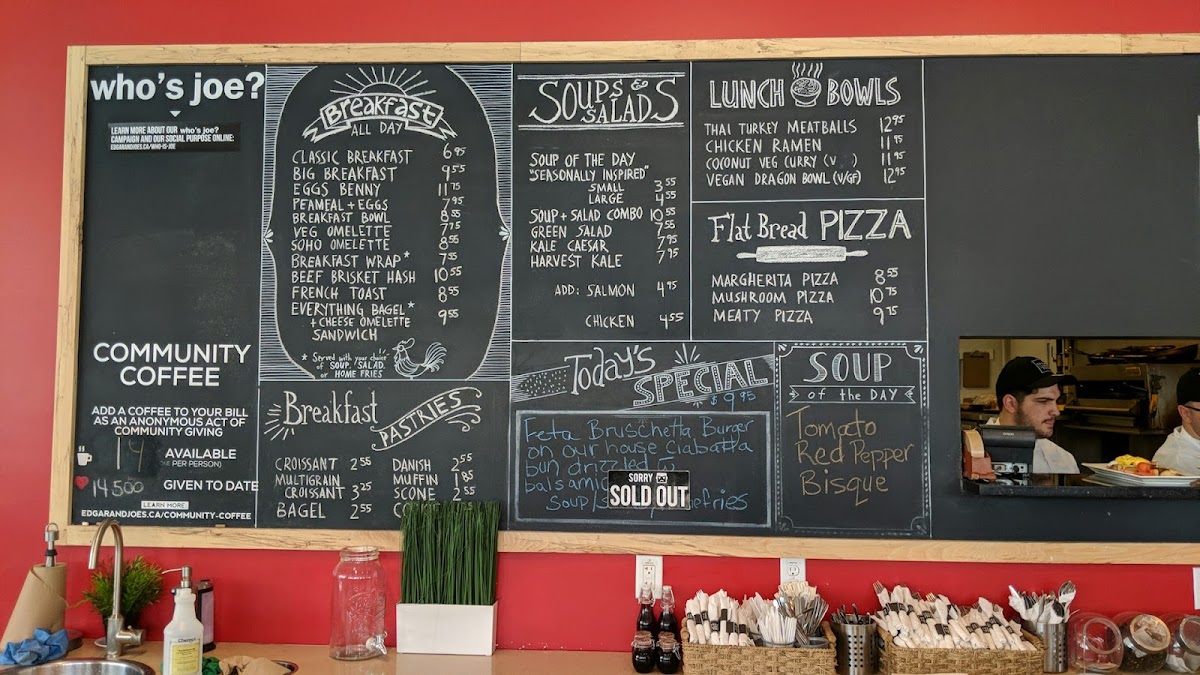 who's joe?
LEARN MORE ABOUT OUR who's joe?
CAMPAIGN AND OUR SOCIAL PURPOSE ONLINE:
EDGARANDJOES.CA/WHO-IS-JOE
COMMUNITY
COFFEE
ADD A COFFEE TO YOUR BILL
AS AN ANONYMOUS ACT OF
COMMUNITY GIVING
14 AVAILABLE
PER PERSON)
14500 GIVEN TO DATE
LEARN MORE
EDGARANDJOES.CA/COMMUNITY-COFFEE
Breakfast
ALL DAY
CLASSIC BREAKFAST 6.95
BIG BREAKFAST 9.55
EGGS BENNY 11.75
PEAMEAL + EGGS 7.95
BREAKFAST BOWL 8.55
VEG OMELETTE 7.75
SOHO OMELETTE 8.55
BREAKFAST WRAP* 7.55
BEEF BRISKET HASH 10.55
FRENCH TOAST 8.55
EVERYTHING BAGEL* 9.55
+ CHEESE OMELETTE
SANDWICH
* Served with your choice
of SOUP, SALAD,
or HOME FRIES
Breakfast
PASTRIES
CROISSANT 2.55
MULTIGRAIN
CROISSANT 3.25
BAGEL 2.55
DANISH 2.55
MUFFIN 1.85
SCONE 2.55
SOUPS & SALADS
SOUP OF THE DAY
"SEASONALLY INSPIRED"
SMALL 3.55
LARGE 4.55
SOUP + SALAD COMBO 10.55
GREEN SALAD 7.55
KALE CAESAR 7.95
HARVEST KALE 7.95
ADD: SALMON 4.95
CHICKEN 4.55
LUNCH BOWLS
THAI TURKEY MEATBALLS 12.95
CHICKEN RAMEN 11.95
COCONUT VEG CURRY (V ) 11.95
VEGAN DRAGON BOWL (V/GF) 12.95
Flat Bread PIZZA
MARGHERITA PIZZA 8.55
MUSHROOM PIZZA 10.75
MEATY PIZZA 9.75
Today's
SPECIAL
$9.95
Feta Bruschetta Burger
on our house Ciabatta
bun drizzled
balsamic
Soup/
SORRY
SOLD OUT
SOUP
of the DAY
Tomato
Red Pepper
Bisque